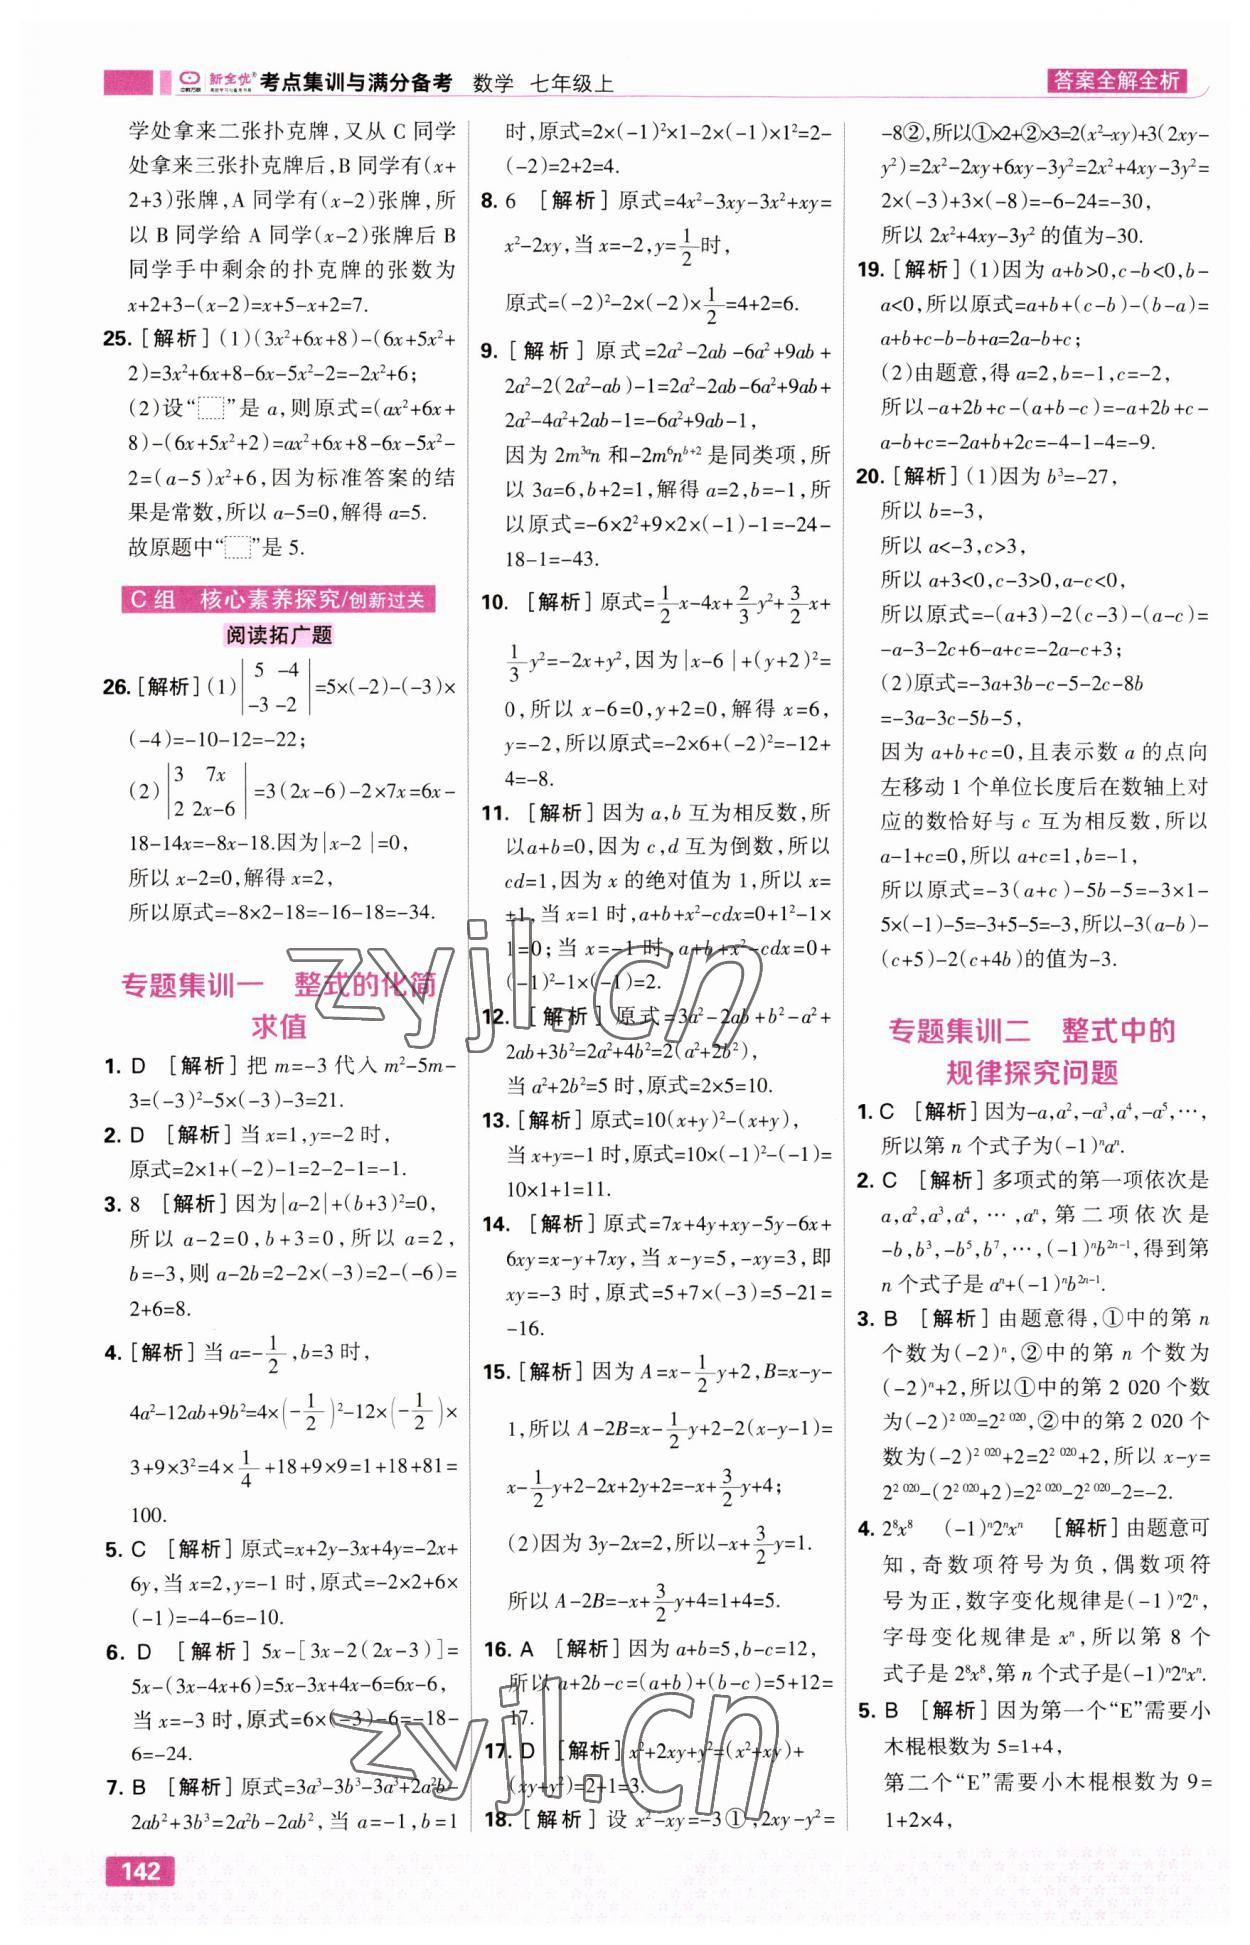 新全优® 考点集训与满分备考 数学 七年级上
答案全解全析
学处拿来二张扑克牌,又从 C 同学
处拿来三张扑克牌后,B 同学有(x+
2+3)张牌,A 同学有(x-2)张牌,所
以 B 同学给 A 同学(x-2)张牌后 B
同学手中剩余的扑克牌的张数为
x+2+3-(x-2)=x+5-x+2=7.
25. [解析](1)(3x²+6x+8)-(6x+5x²+
2)=3x²+6x+8-6x-5x²-2=-2x²+6;
(2)设“□”是 a,则原式=(ax²+6x+
8)-(6x+5x²+2)=ax²+6x+8-6x-5x²-
2=(a-5)x²+6,因为标准答案的结
果是常数,所以 a-5=0,解得 a=5.
故原题中“□”是 5.
C 组 核心素养探究/创新过关
阅读拓广题
26. [解析](1)|5 -4; -3 -2|=5×(-2)-(-3)×
(-4)=-10-12=-22;
(2)|3 7x; 2 2x-6|=3(2x-6)-2×7x=6x-
18-14x=-8x-18.因为|x-2|=0,
所以 x-2=0,解得 x=2,
所以原式=-8×2-18=-16-18=-34.
专题集训一 整式的化简
求值
1. D [解析]把 m=-3 代入 m²-5m-
3=(-3)²-5×(-3)-3=21.
2. D [解析]当 x=1,y=-2 时,
原式=2×1+(-2)-1=2-2-1=-1.
3. 8 [解析]因为|a-2|+(b+3)²=0,
所以 a-2=0,b+3=0,所以 a=2,
b=-3,则 a-2b=2-2×(-3)=2-(-6)=
2+6=8.
4. [解析]当 a=-1/2,b=3 时,
4a²-12ab+9b²=4×(-1/2)²-12×(-1/2)×
3+9×3²=4×1/4+18+9×9=1+18+81=
100.
5. C [解析]原式=x+2y-3x+4y=-2x+
6y,当 x=2,y=-1 时,原式=-2×2+6×
(-1)=-4-6=-10.
6. D [解析]5x-[3x-2(2x-3)]=
5x-(3x-4x+6)=5x-3x+4x-6=6x-6,
当 x=-3 时,原式=6×(-3)-6=-18-
6=-24.
7. B [解析]原式=3a³-3b³-3a³+2a²b-
2ab²+3b³=2a²b-2ab²,当 a=-1,b=1
142
时,原式=2×(-1)²×1-2×(-1)×1²=2-
(-2)=2+2=4.
8. 6 [解析]原式=4x²-3xy-3x²+xy=
x²-2xy,当 x=-2,y=1/2时,
原式=(-2)²-2×(-2)×1/2=4+2=6.
9. [解析]原式=2a²-2ab-6a²+9ab+
2a²-2(2a²-ab)-1=2a²-2ab-6a²+9ab+
2a²-4a²+2ab-1=-6a²+9ab-1,
因为 2m³ᵃn 和-2m⁶nᵇ⁺² 是同类项,所
以 3a=6,b+2=1,解得 a=2,b=-1,所
以原式=-6×2²+9×2×(-1)-1=-24-
18-1=-43.
10. [解析]原式=1/2x-4x+2/3y²+3/2x+
1/3y²=-2x+y²,因为|x-6|+(y+2)²=
0,所以 x-6=0,y+2=0,解得 x=6,
y=-2,所以原式=-2×6+(-2)²=-12+
4=-8.
11. [解析]因为 a,b 互为相反数,所
以a+b=0,因为 c,d 互为倒数,所以
cd=1,因为 x 的绝对值为 1,所以 x=
±1,当 x=1 时,a+b+x²-cdx=0+1²-1×
1=0;当 x=-1 时,a+b+x²-cdx=0+
(-1)²-1×(-1)=2.
12. [解析]原式=3a²-2ab+b²-a²+
2ab+3b²=2a²+4b²=2(a²+2b²),
当 a²+2b²=5 时,原式=2×5=10.
13. [解析]原式=10(x+y)²-(x+y),
当 x+y=-1 时,原式=10×(-1)²-(-1)=
10×1+1=11.
14. [解析]原式=7x+4y+xy-5y-6x+
6xy=x-y+7xy,当 x-y=5,-xy=3,即
xy=-3 时,原式=5+7×(-3)=5-21=
-16.
15. [解析]因为 A=x-1/2y+2,B=x-y-
1,所以 A-2B=x-1/2y+2-2(x-y-1)=
x-1/2y+2-2x+2y+2=-x+3/2y+4;
(2)因为 3y-2x=2,所以-x+3/2y=1.
所以 A-2B=-x+3/2y+4=1+4=5.
16. A [解析]因为 a+b=5,b-c=12,
所以 a+2b-c=(a+b)+(b-c)=5+12=
17.
17. D [解析]x²+2xy+y²=(x²+xy)+
(xy+y²)=2+1=3.
18. [解析]设 x²-xy=-3①,2xy-y²=
-8②,所以①×2+②×3=2(x²-xy)+3(2xy-
y²)=2x²-2xy+6xy-3y²=2x²+4xy-3y²=
2×(-3)+3×(-8)=-6-24=-30,
所以 2x²+4xy-3y² 的值为-30.
19. [解析](1)因为 a+b>0,c-b<0,b-
a<0,所以原式=a+b+(c-b)-(b-a)=
a+b+c-b-b+a=2a-b+c;
(2)由题意,得 a=2,b=-1,c=-2,
所以-a+2b+c-(a+b-c)=-a+2b+c-
a-b+c=-2a+b+2c=-4-1-4=-9.
20. [解析](1)因为 b³=-27,
所以 b=-3,
所以 a<-3,c>3,
所以 a+3<0,c-3>0,a-c<0,
所以原式=-(a+3)-2(c-3)-(a-c)=
-a-3-2c+6-a+c=-2a-c+3;
(2)原式=-3a+3b-c-5-2c-8b
=-3a-3c-5b-5,
因为 a+b+c=0,且表示数 a 的点向
左移动 1 个单位长度后在数轴上对
应的数恰好与 c 互为相反数,所以
a-1+c=0,所以 a+c=1,b=-1,
所以原式=-3(a+c)-5b-5=-3×1-
5×(-1)-5=-3+5-5=-3,所以-3(a-b)-
(c+5)-2(c+4b)的值为-3.
专题集训二 整式中的
规律探究问题
1. C [解析]因为-a,a²,-a³,a⁴,-a⁵,…,
所以第 n 个式子为(-1)ⁿaⁿ.
2. C [解析]多项式的第一项依次是
a,a²,a³,a⁴,…,aⁿ,第二项依次是
-b,b³,-b⁵,b⁷,…,(-1)ⁿb²ⁿ⁻¹,得到第
n 个式子是 aⁿ+(-1)ⁿb²ⁿ⁻¹.
3. B [解析]由题意得,①中的第 n
个数为(-2)ⁿ,②中的第 n 个数为
(-2)ⁿ+2,所以①中的第 2 020 个数
为(-2)²⁰²⁰=2²⁰²⁰,②中的第 2 020 个
数为(-2)²⁰²⁰+2=2²⁰²⁰+2,所以 x-y=
2²⁰²⁰-(2²⁰²⁰+2)=2²⁰²⁰-2²⁰²⁰-2=-2.
4. 2⁸x⁸ (-1)ⁿ2ⁿxⁿ [解析]由题意可
知,奇数项符号为负,偶数项符
号为正,数字变化规律是(-1)ⁿ2ⁿ,
字母变化规律是 xⁿ,所以第 8 个
式子是 2⁸x⁸,第 n 个式子是(-1)ⁿ2ⁿxⁿ.
5. B [解析]因为第一个“E”需要小
木棍根数为 5=1+4,
第二个“E”需要小木棍根数为 9=
1+2×4,
zyjl.cn
zyjl.cn